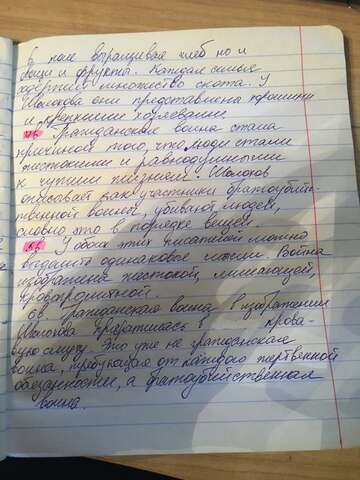 в поле выращивая хлеб но и
овощи и фрукты. Каждая семья
содержит множество скота. У
Шолохова они представлена хорошими
и крепкими хозяевами
4в Гражданская война стала
причиной того, что люди стали
жестокими и равнодушными
к чужим жизням. Шолохов
описывает как участники братоубийс-
твенной войны, убивают людей,
словно это в порядке вещей.
5в У обоих этих писателей можно
выделить одинаковые мысли. Война
изображена жестокой,
кровопролитной.
6в Гражданская война в изображении
Шолохова превратилась в крова-
вую смуту. Это уже не гражданская
война, требующая от каждого жертвенной
обязанности, а братоубийственная
война.